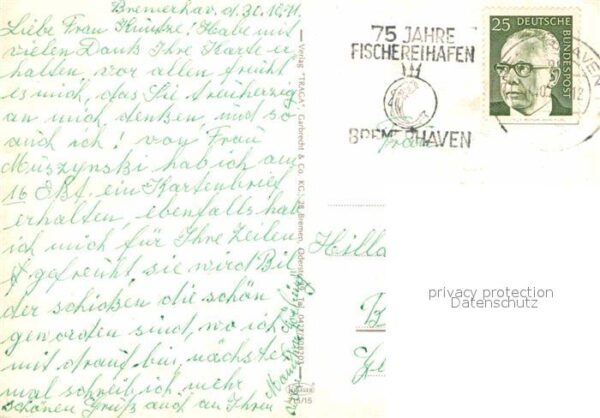 Bremerhav. d. 30.10.71
Liebe Frau
Habe mit
vielen Dank Ihre Karte er
halten, vor allen freuht
es mich, das Sie treuherzig
an mich denken und so
auch ich! von Frau
Muszynski hab ich am
16 Okt. ein Kartenbrief
erhalten, ebenfalls hab
ich mich für Ihre Zeilen
gefreuht sie wird Bil
der schicken die schön
geworden sind, wo ich
mit drauf bin, nächste
mal schreib ich mehr
schönen Gruß auch an Ihren
Verlag "TRAGA", Garbrecht & Co. KG., 28 Bremen,
75 JAHRE
FISCHEREIHAFEN
BREMERHAVEN
25 DEUTSCHE
BUNDESPOST
Frau
Hilla
privacy protection
Datenschutz